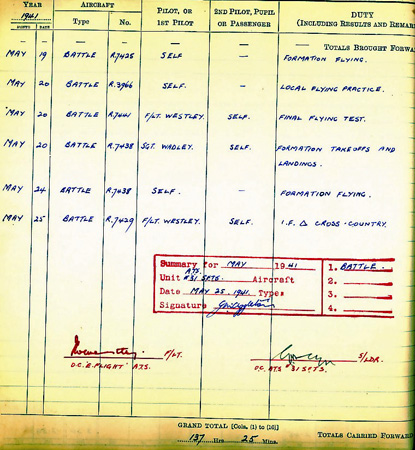 YEAR AIRCRAFT PILOT, OR 2ND PILOT, PUPIL DUTY
1941 Type No. 1ST PILOT OR PASSENGER (INCLUDING RESULTS AND REMAR
MONTH DATE
— — — — TOTALS BROUGHT FORW
MAY 19 BATTLE R.7425 SELF — FORMATION FLYING.
MAY 20 BATTLE R.3966 SELF. — LOCAL FLYING PRACTICE.
MAY 20 BATTLE R.7441 F/LT. WESTLEY. SELF. FINAL FLYING TEST.
MAY 20 BATTLE R.7438 SGT. WADLEY. SELF. FORMATION TAKEOFFS AND
LANDINGS.
MAY 24 BATTLE R.7438 SELF. — FORMATION FLYING.
MAY 25 BATTLE R.7429 F/LT. WESTLEY. SELF. I.F. Δ CROSS-COUNTRY.
Summary for MAY 1941 1. BATTLE.
Unit A.T.S. #31 SFTS. Aircraft 2.
Date MAY 25, 1941. Types 3.
Signature 4.
F/LT. S/LDR.
O.C. B. FLIGHT A.T.S. O.C. ATS #31 S.F.T.S.
GRAND TOTAL [Cols. (1) to (10)]
137 Hrs 25 Mins. TOTALS CARRIED FORWARD